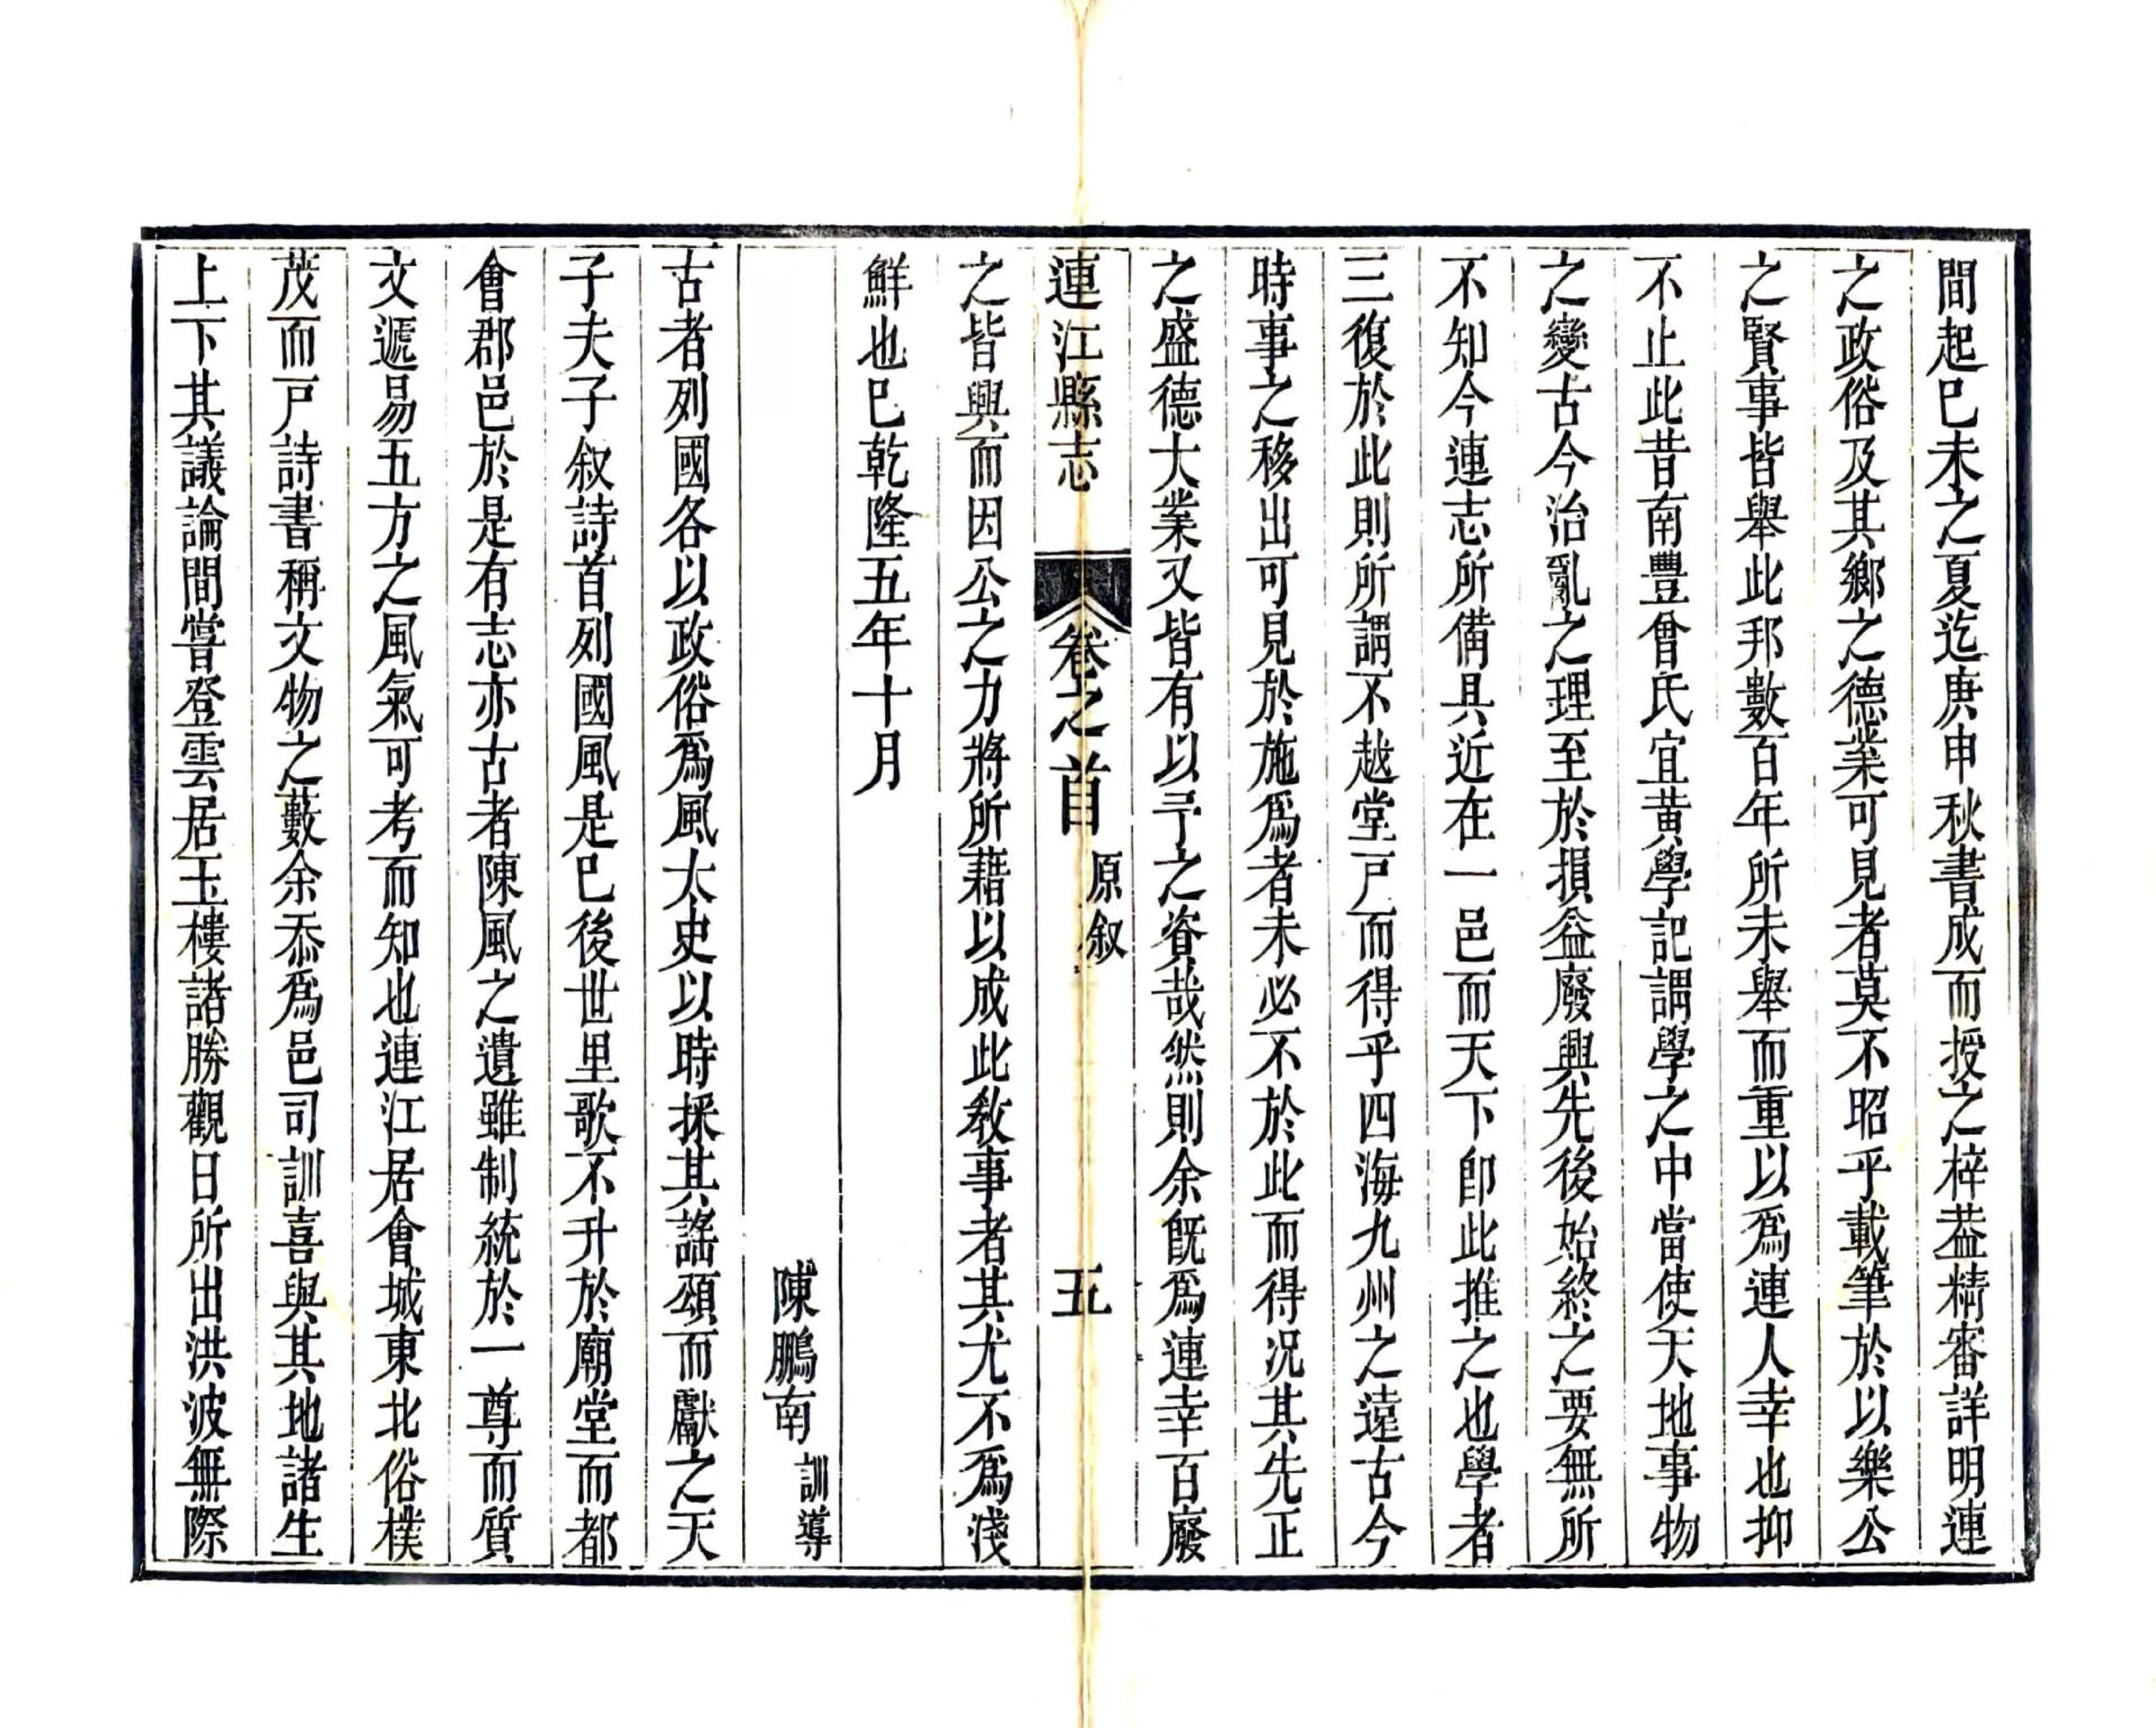 間起巳未之夏迄庚申秋書成而授之梓葢精審詳明連
之政俗及其鄉之德業可見者莫不昭乎載筆於以樂公
之賢事皆舉此邦數百年所未舉而重以爲連人幸也抑
不止此昔南豐曾氏宜黃學記謂學之中當使天地事物
之變古今治亂之理至於損益廢興先後始終之要無所
不知今連志所備具近在一邑而天下卽此推之也學者
三復於此則所謂不越堂戸而得乎四海九州之遠古今
時事之移出可見於施爲者未必不於此而得况其先正
之盛德大業又皆有以予之資哉然則余旣爲連幸百廢
連江縣志 卷之首 原叙 五
之皆興而因公之力將所藉以成此敎事者其尤不爲淺
鮮也巳乾隆五年十月
陳鵬南 訓導
古者列國各以政俗爲風太史以時採其謠頌而獻之天
子夫子叙詩首列國風是巳後世里歌不升於廟堂而都
會郡邑於是有志亦古者陳風之遺雖制統於一尊而質
文遞易五方之風氣可考而知也連江居會城東北俗樸
茂而戸詩書稱文物之藪余忝爲邑司訓喜與其地諸生
上下其議論間嘗登雲居玉樓諸勝觀日所出洪波無際